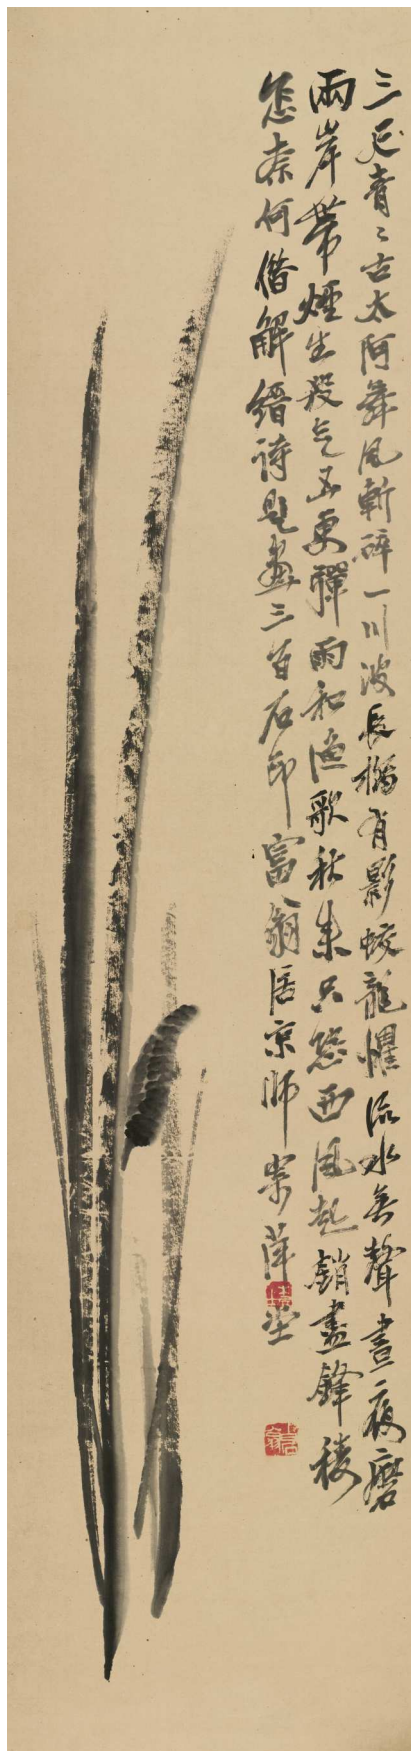 三尺青〻古太阿舞風斬碎一川波長橋有影蛟龍懼流水無聲晝夜磨
兩岸帶煙生殺气五更彈雨和漁歌秋來只恐西風起銷盡鋒稜
怎奈何借解縉詩題畫三百石印富翁居京師寄萍堂